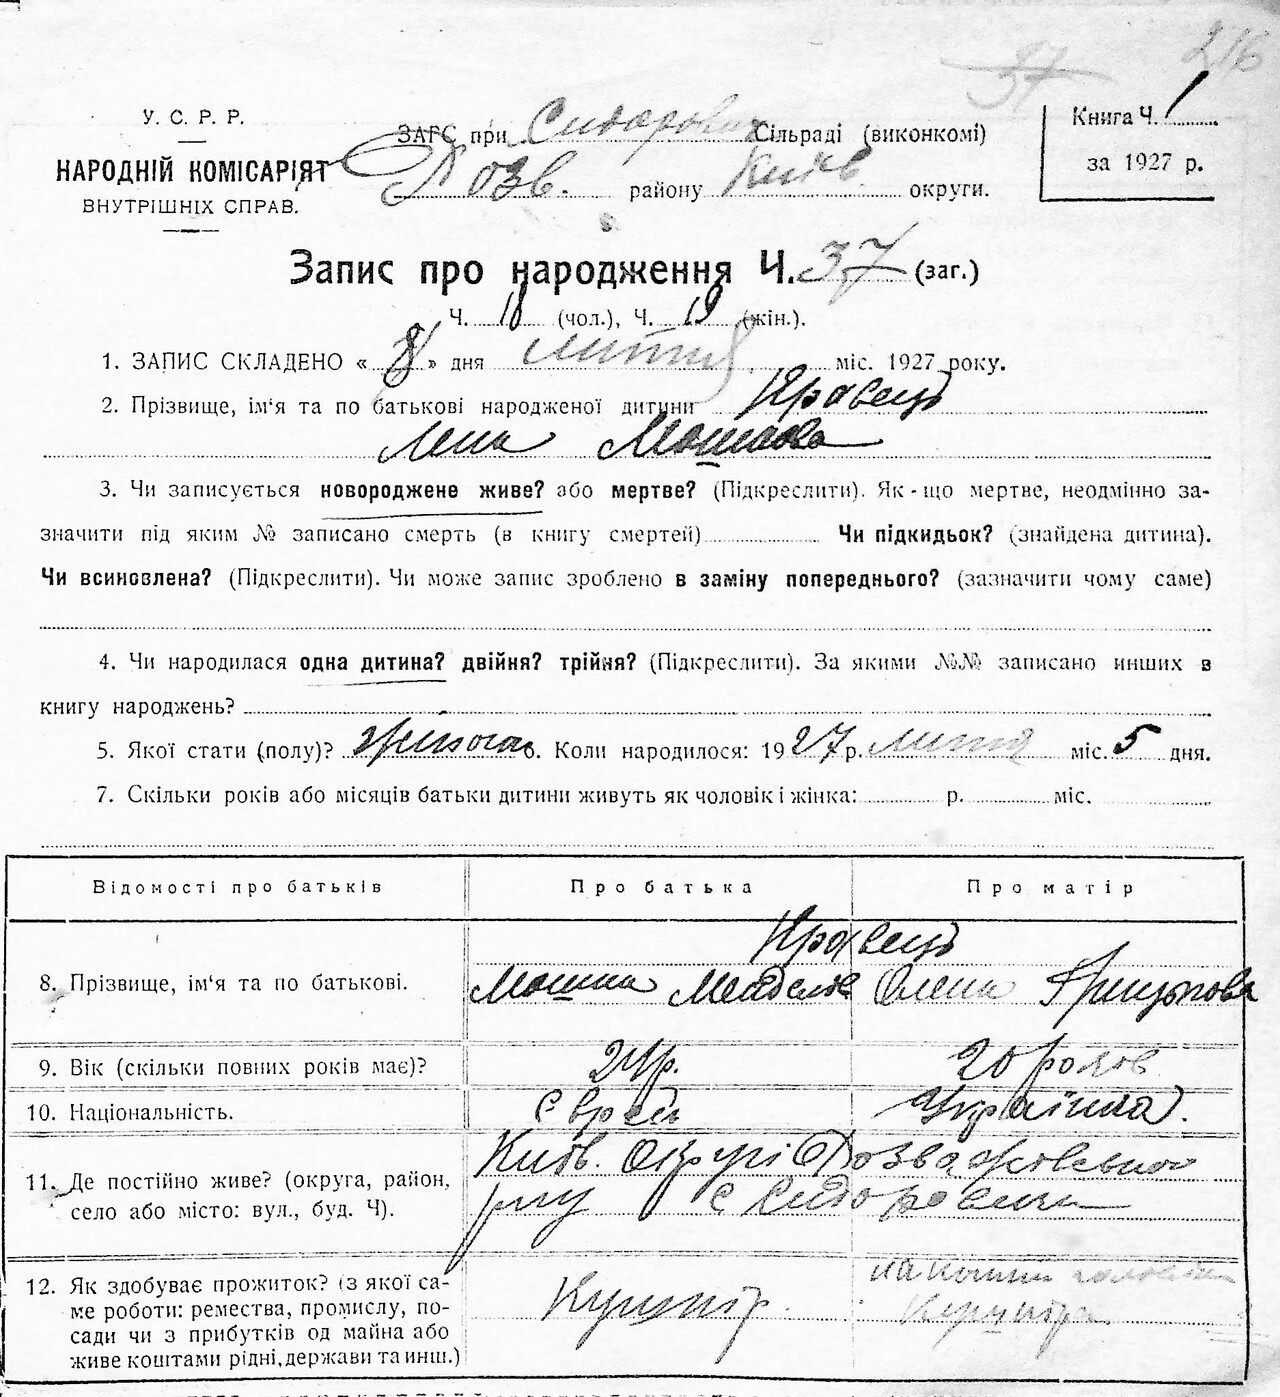 216
37
У. С. Р. Р.
НАРОДНІЙ КОМІСАРІЯТ
ВНУТРІШНІХ СПРАВ.
ЗАГС при Сидорович Сільраді (виконкомі)
Розв. району Київ. округи.
Книга Ч. 1
за 1927 р.
Запис про народження Ч. 37 (заг.)
Ч. 18 (чол.), Ч. 19 (жін.).
1. ЗАПИС СКЛАДЕНО « 8 » дня лютня міс. 1927 року.
2. Прізвище, ім'я та по батькові народженої дитини Кравець
Ліна Мошкова
3. Чи записується новороджене живе? або мертве? (Підкреслити). Як-що мертве, неодмінно за-
значити під яким № записано смерть (в книгу смертей) Чи підкидьок? (знайдена дитина).
Чи всиновлена? (Підкреслити). Чи може запис зроблено в заміну попереднього? (зазначити чому саме)
4. Чи народилася одна дитина? двійня? трійня? (Підкреслити). За якими №№ записано инших в
книгу народжень?
5. Якої стати (полу)? жіноча 6. Коли народилося: 1927 р. лютня міс. 5 дня.
7. Скільки років або місяців батьки дитини живуть як чоловік і жінка: р. міс.
Відомості про батьків Про батька Про матір
Кравець
8. Прізвище, ім'я та по батькові. Мошка Менделів Олена Грицькова
9. Вік (скільки повних років має)? 24 р. 20 років
10. Національність. Єврей Українка.
11. Де постійно живе? (округа, район, Київ. Округи Розважівського
село або місто: вул., буд. Ч). р-ну с Сидоровичи
12. Як здобуває прожиток? (з якої са-
ме роботи: ремества, промислу, по-
сади чи з прибутків од майна або
живе коштами рідні, держави та инш.)
Кушнір. на кошти чоловіка
Кушніра